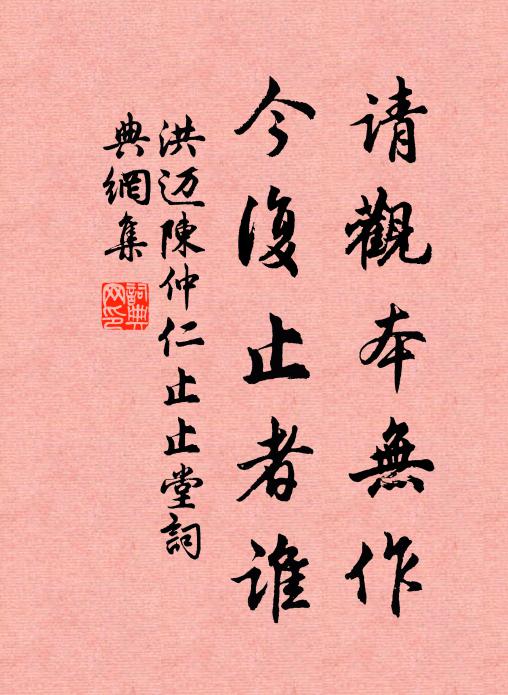 请觀本無作
今復止者誰
洪迈陳仲仁止止堂詞
典網集
詞典
网印